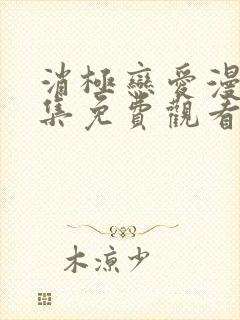 消極戀愛漫
集免費觀看
木涼少